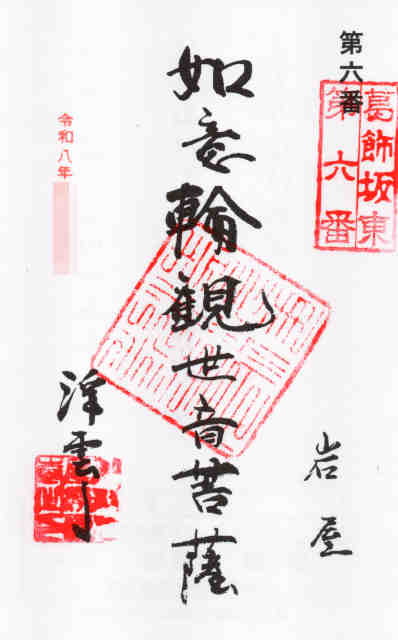 第六番
葛飾坂東
第六番
岩屋
如意輪観世音菩薩
令和八年
浮雲寺